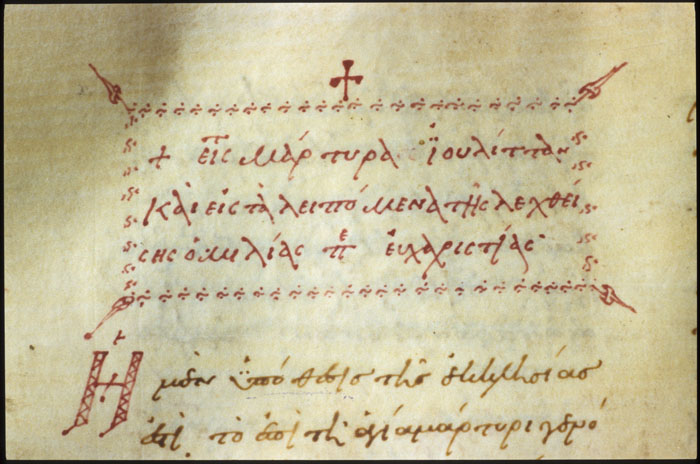 + εἰς μάρτυρα ἰουλίτταν
καὶ εἰς τὰ λειπόμενα τῆς λεχθεί
σης ὁμιλίας πε εὐχαριστίας
Ἡ μὲν ὑπόθεσις τῆς ἐκκλησίας
ἐστὶ τὸ ἐπὶ τῆ ἁγία μάρτυρι